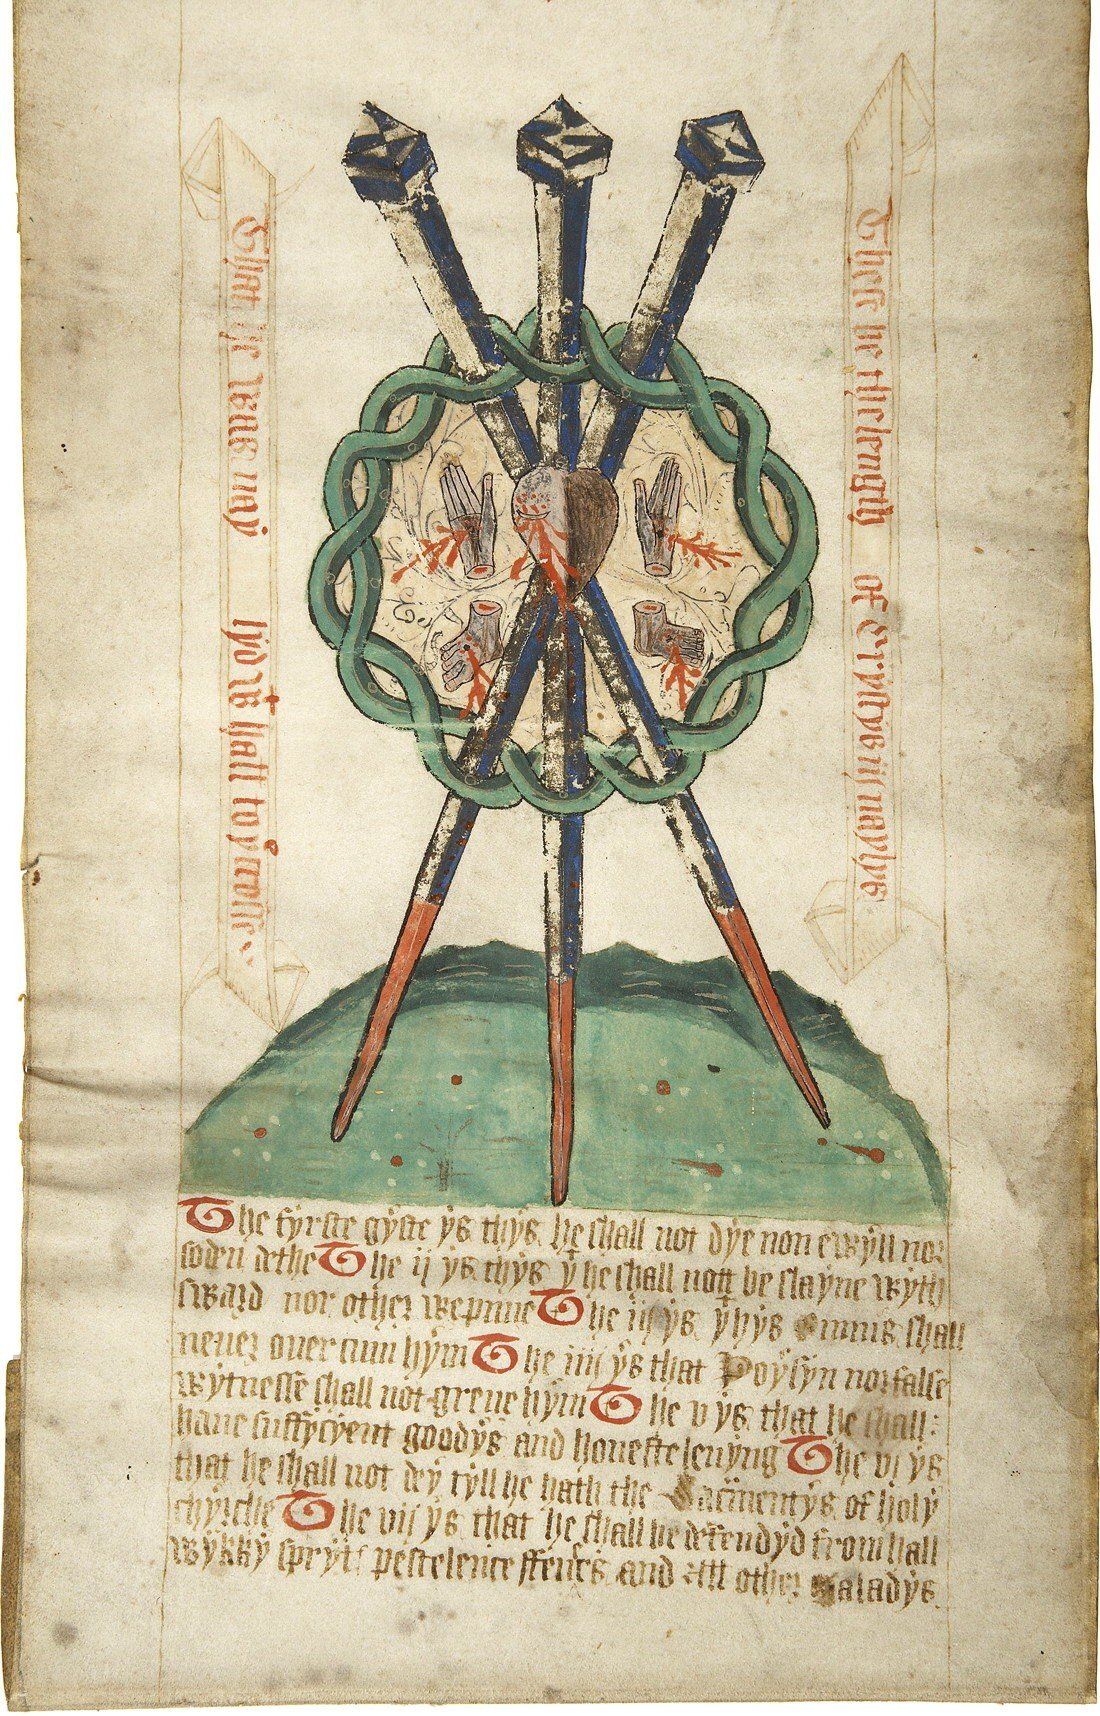 That he was nay lyd w{t}all to ye crosse
These be the length of Crystys iij naylys
The fyrste gyfte ys thys he shall not dye non ewyll nor
soden dethe The ij ys thys yt he shall nott be slayne wyth
sward nor other wepnne The iij ys yt hys enmis shall
never over cum hym The iiij ys that Poysyn nor false
wytnesse shall not greve hym The v ys that he shall
have suffycyent goodys and honeste levyng The vj ys
that he shall not dey tyll he hath the Sacmentys of holy
chyrche The vij ys that he shall be defendyd from hall
wykky spryts pestelence ffevers and all other maladys